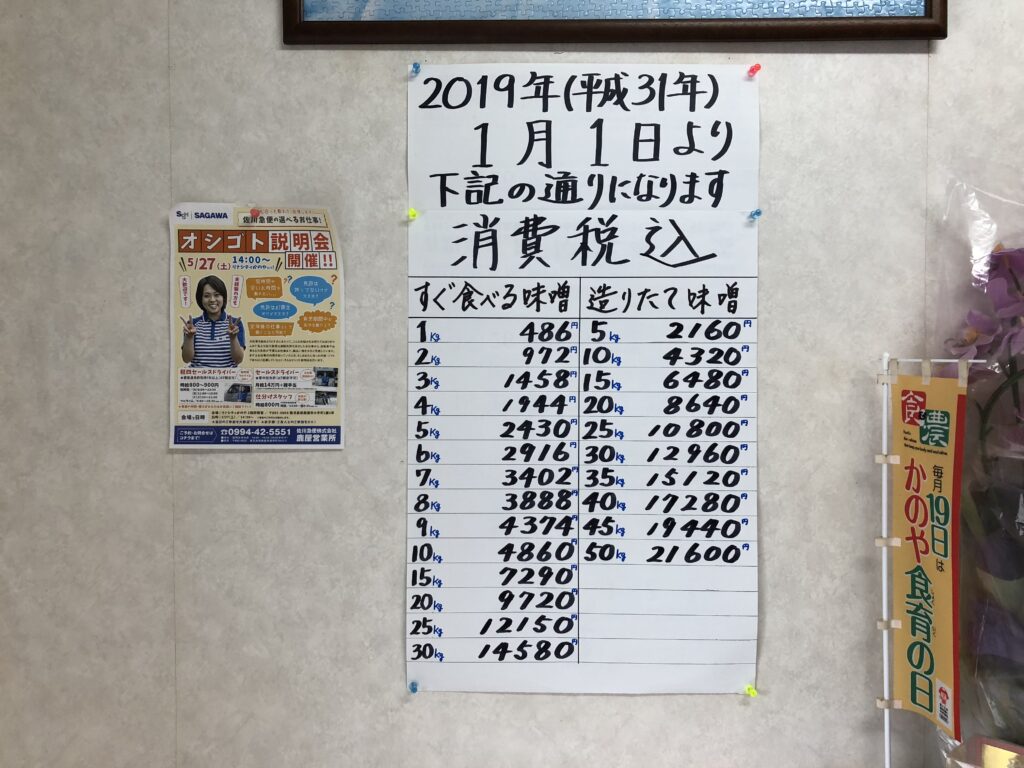 2019年(平成31年)
1月1日より
下記の通りになります
消費税込
すぐ食べる味噌
1kg 486円
2kg 972円
3kg 1458円
4kg 1944円
5kg 2430円
6kg 2916円
7kg 3402円
8kg 3888円
9kg 4374円
10kg 4860円
15kg 7290円
20kg 9720円
25kg 12150円
30kg 14580円
造りたて味噌
5kg 2160円
10kg 4320円
15kg 6480円
20kg 8640円
25kg 10800円
30kg 12960円
35kg 15120円
40kg 17280円
45kg 19440円
50kg 21600円
SAGAWA
佐川急便の選べるお仕事!
オシゴト説明会
開催!!
5/27(土) 14:00〜
軽四セールスドライバー
時給800〜900円
セールスドライバー
月給14万円+歩手当
仕分けスタッフ
時給800円
会場・日時
0994-42-5551
佐川急便株式会社
鹿屋営業所
食と農
毎月19日は
かのや食育の日